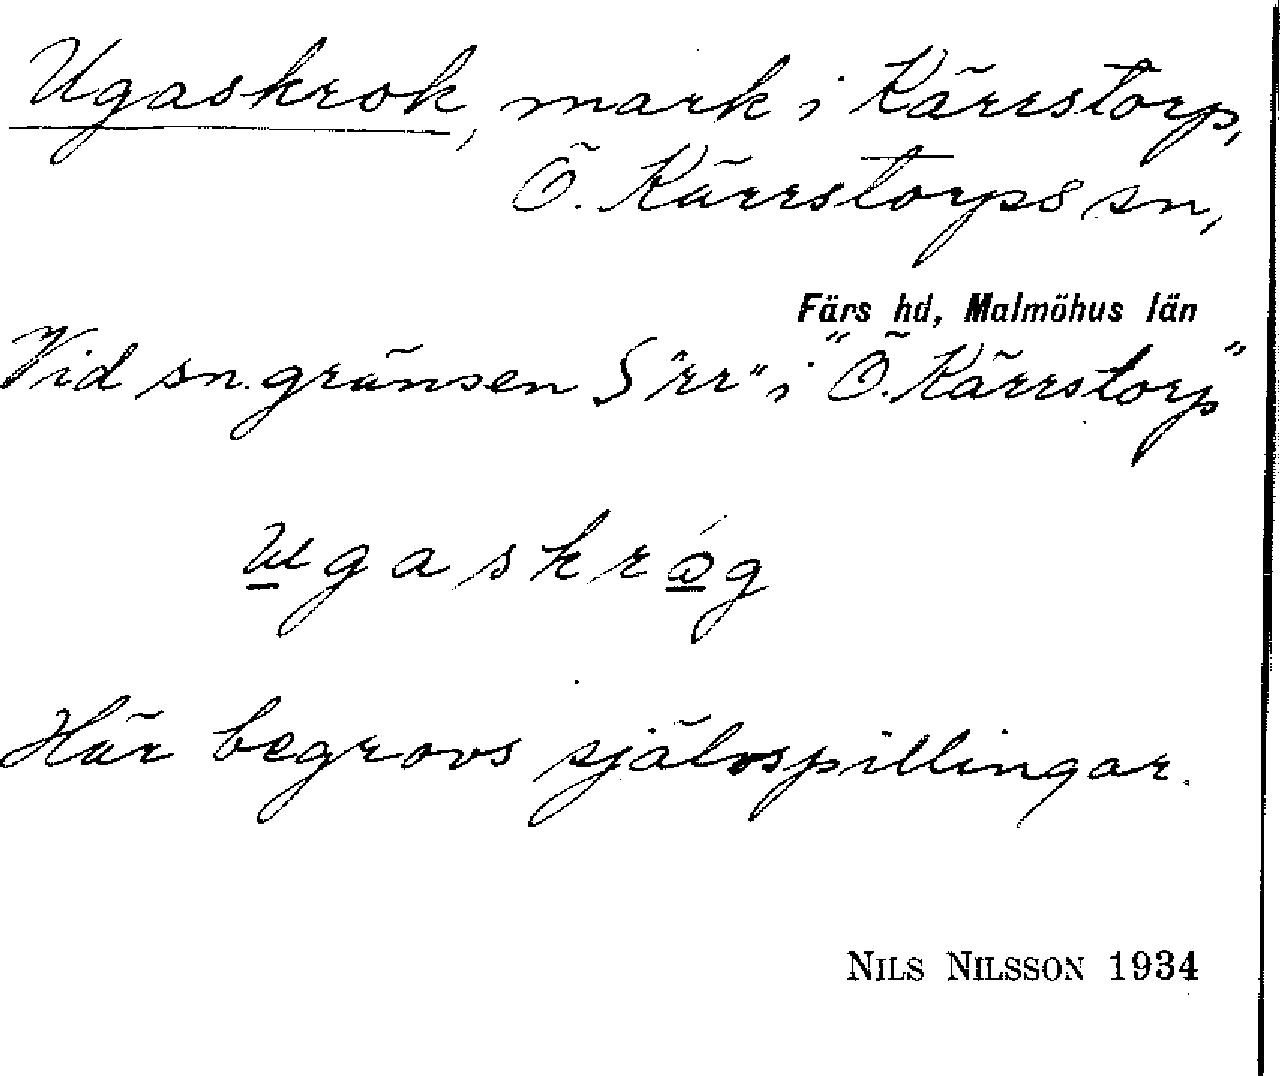 Ugaskrok, mark i Kärrstorp,
Ö. Kärrstorps sn,
Färs hd, Malmöhus län
Vid sn.gränsen S "rr" i "Ö. Kärrstorp"
ugaskrǿg
Här begrovs självspillingar.
NILS NILSSON 1934